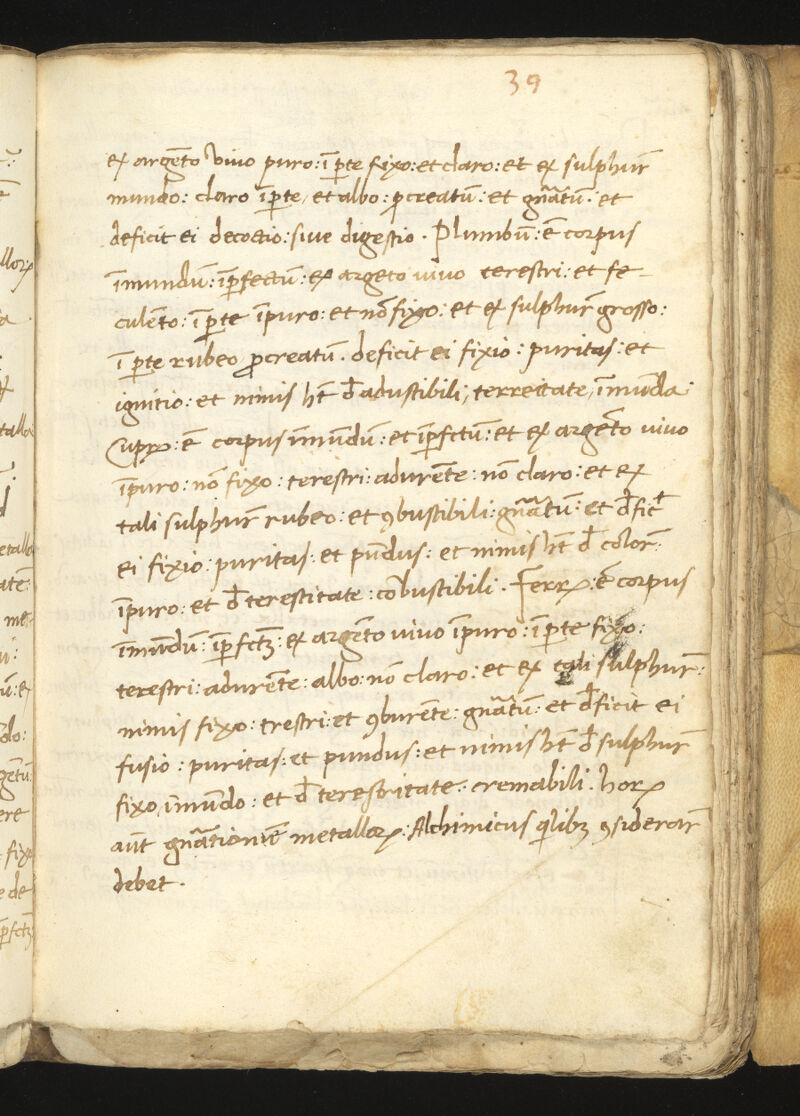 39
ex argēto vivo puro: ī pte fixo: et claro: et ex sulphur̄
mundo: claro ī pte, et albo: pcreatū: et gn̄atū. et
deficit ei decoctio: sive digestio. Plumbū: ē corpus
īmundū: īpfectū: ex argēto vivo terestri: et fe-
culēto: ī pte īpuro: et nō fixo: et ex sulphur̄ grosso:
ī pte rubeo pcreatū. deficit ei fixio: puritas: et
ignitio: et nimis ht̄ d̄ adustibili, terreitate, īmūda:
Cupꝝ: ē corpus īmūdū: et īpfctū: et ex argēto vivo
īpuro: nō fixo: terestri: adurēte: nō claro: et ex
tali sulphur̄ rubeo: et ꝯbustibili: gn̄atū: et d̄fict
ei fixio: puritas: et pūdus: et nimis ht̄ d̄ color̄:
īpuro: et d̄ terestitate: cōbustibili. Ferꝝ: ē corpus
īmūdū: īpfctꝫ: ex argēto vivo īpuro: ī pte fixo:
terestri: adurēte: albo: nō claro: et ex tali sulphur̄:
nimis fixo: trestri: et ꝯburēte: gn̄atū: et d̄ficit ei
fusio: puritas: et pundus: et nimis ht̄ d̄ sulphur̄
fixo, imūdo: et d̄ terestritate: cremabili. horꝝ
aūt gn̄ationē metalloꝝ: Alchimicus qlibꝫ ꝯsiderar̄
debet.